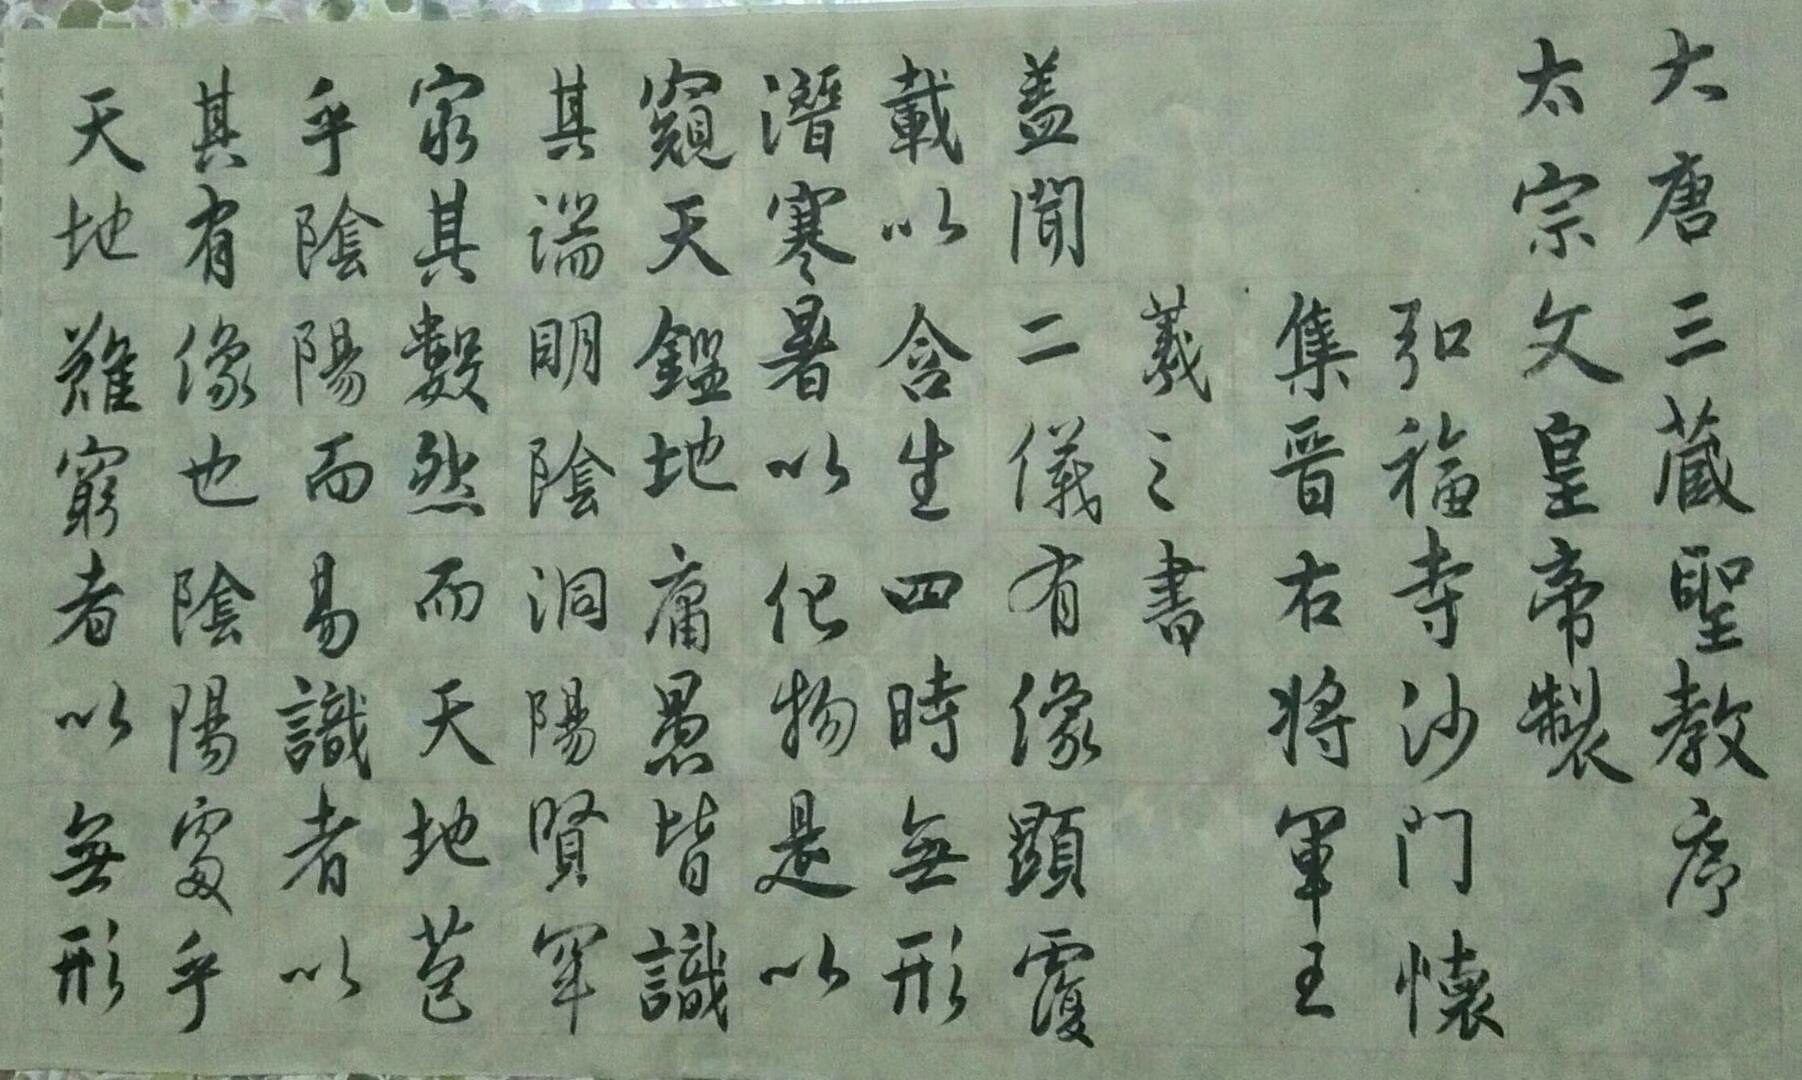 大唐三藏聖教序
太宗文皇帝製
弘福寺沙門懷
集晉右將軍王
羲之書
盖聞二儀有像顯覆
載以含生四時無形
潛寒暑以化物是以
窺天鑑地庸愚皆識
其端明陰洞陽賢罕
窮其數然而天地苞
乎陰陽而易識者以
其有像也陰陽處乎
天地難窮者以無形